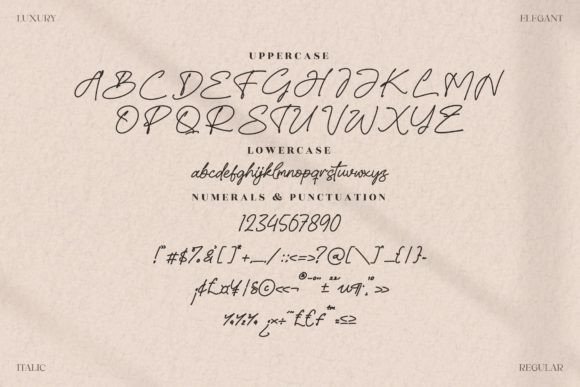 LUXURY ELEGANT
UPPERCASE
ABCDEFGHIJKLMN
OPQRSTUVWXYZ
LOWERCASE
abcdefghijklmnopqrstuvwxyz
NUMERALS & PUNCTUATION
1234567890
!"#$%&'[]*+,-./:;<=>?@[\]_{|}-
¡¢£¤¥¦§©«¬®±µ¶·»
¿×÷£€ƒ™≤≥
ITALIC REGULAR